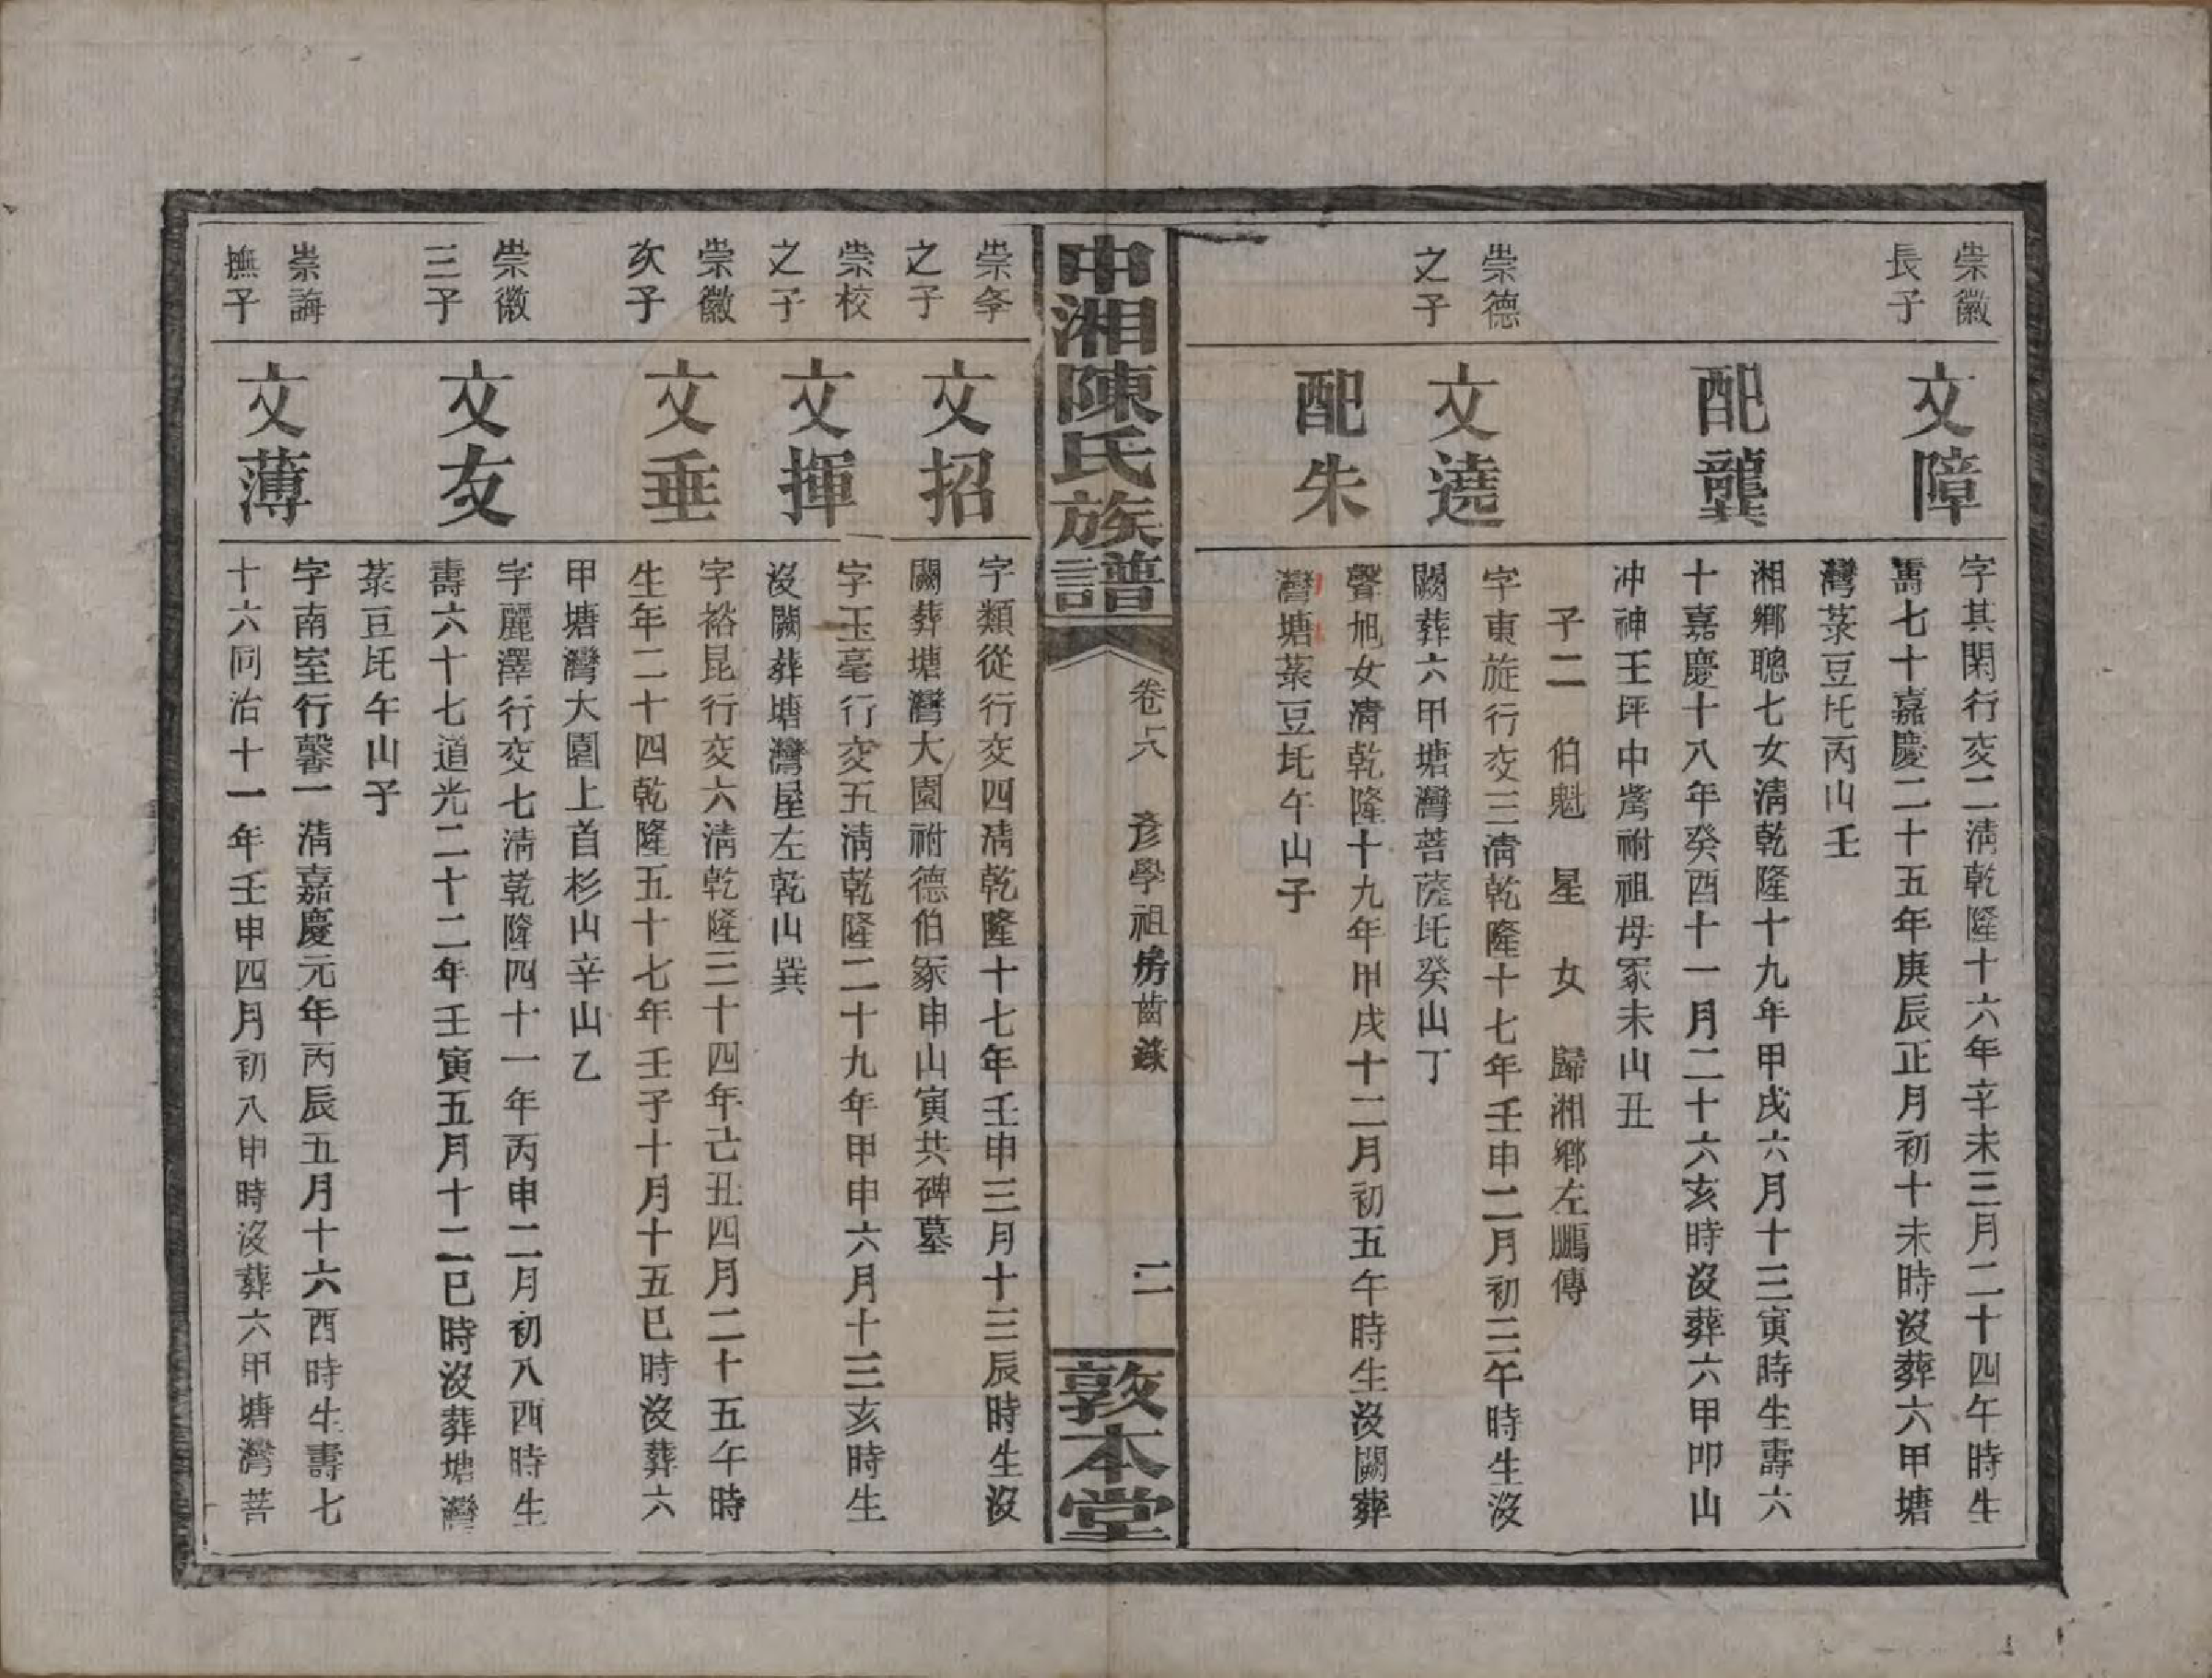 崇徽
長子
文障
字其閑行交二淸乾隆十六年辛未三月二十四午時生
壽七十嘉慶二十五年庚辰正月初十未時沒葬六甲塘
灣菉豆坵丙山壬
配龔
湘鄉聰七女淸乾隆十九年甲戌六月十三寅時生壽六
十嘉慶十八年癸酉十一月二十六亥時沒葬六甲叩山
冲神王坪中嘴祔祖母冢未山丑
子二 伯魁 星 女 歸湘鄉左鵬傳
崇德
之子
文遶
字東旋行交三淸乾隆十七年壬申二月初三午時生沒
闕葬六甲塘灣菩薩坵癸山丁
配朱
聲旭女淸乾隆十九年甲戌十二月初五午時生沒闕葬
灣塘菉豆坵午山子
中湘陳氏族譜
卷六 彥學祖房齒錄 二
敦本堂
崇夆
之子
文招
字類從行交四淸乾隆十七年壬申三月十三辰時生沒
闕葬塘灣大園祔德伯冢申山寅共碑墓
崇校
之子
文揮
字玉毫行交五淸乾隆二十九年甲申六月十三亥時生
沒闕葬塘灣屋左乾山巽
崇徽
次子
文垂
字裕昆行交六淸乾隆三十四年己丑四月二十五午時
生年二十四乾隆五十七年壬子十月十五巳時沒葬六
甲塘灣大園上首杉山辛山乙
崇徽
三子
文友
字麗澤行交七淸乾隆四十一年丙申二月初八酉時生
壽六十七道光二十二年壬寅五月十二巳時沒葬塘灣
菉豆坵午山子
崇誨
撫子
文薄
字南室行馨一淸嘉慶元年丙辰五月十六酉時生壽七
十六同治十一年壬申四月初八申時沒葬六甲塘灣菩